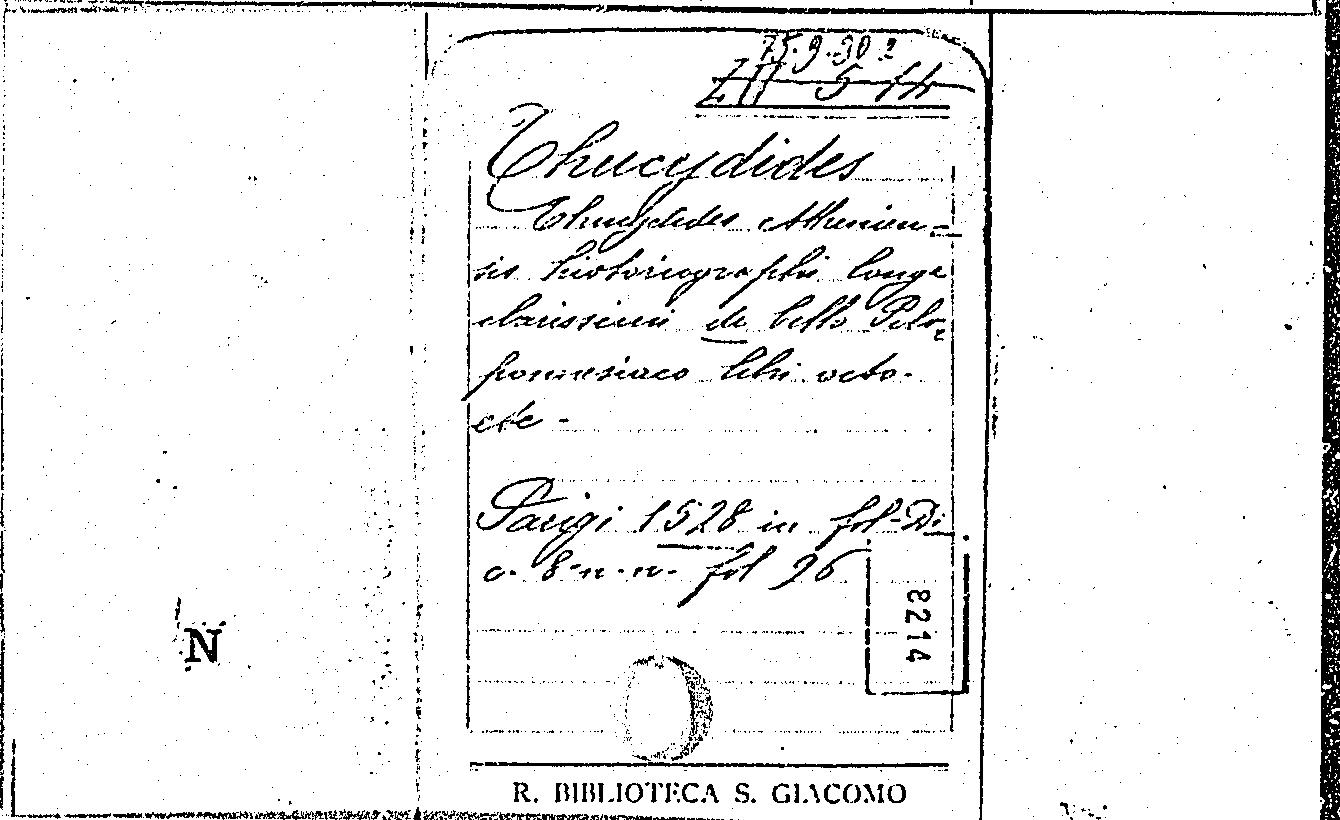 75.9.30 2
ZII 5 14
Thucydides
Thucydides Athenien-
sis historiographi longe
clarissimi de bello Pelo-
ponnesiaco libri octo.
etc -
Parigi 1528 in fol- Di
c. 8 n. n. fol 96
8214
N
R. BIBLIOTECA S. GIACOMO